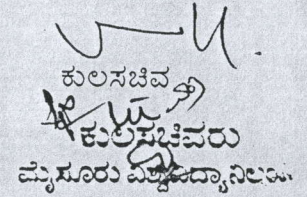 ಕುಲಸಚಿವ
ಕುಲಸಚಿವರು
ಮೈಸೂರು ವಿಶ್ವವಿದ್ಯಾನಿಲಯ.